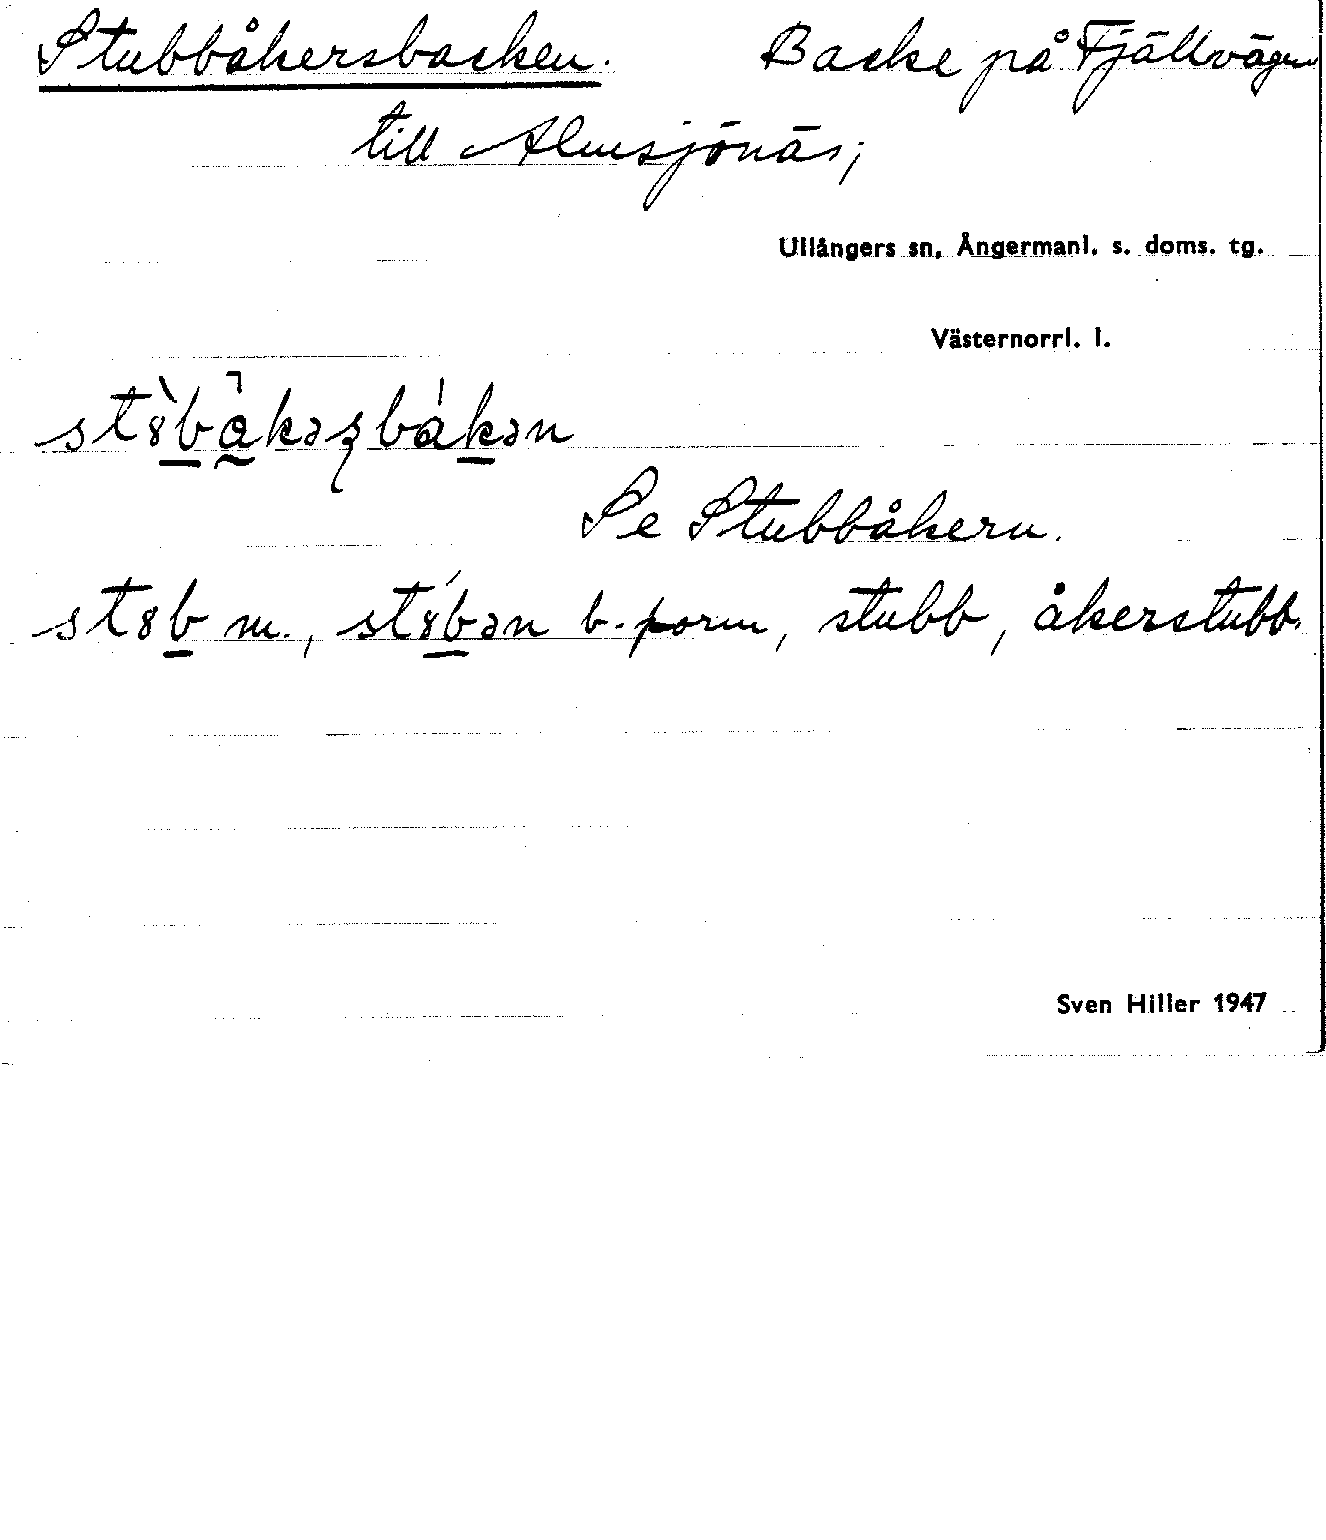 Stubbåkersbacken. Backe på Fjällvägen
till Almsjönäs;
Ullångers sn, Ångermanl. s. doms. tg.
Västernorrl. l.
Se Stubbåkern.
m., b.-form, stubb, åkerstubb.
Sven Hiller 1947